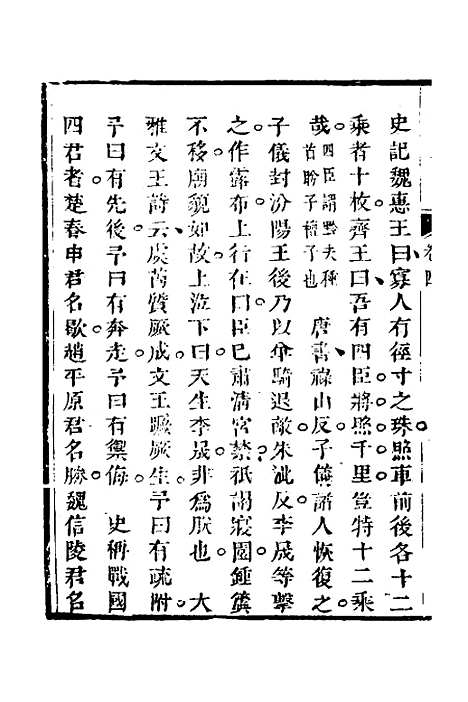 卷四
史記魏惠王曰寡人有徑寸之珠照車前後各十二
乘者十枚齊王曰吾有四臣將照千里豈特十二乘
哉四臣謂黔夫種首盼子檀子也　唐書祿山反子儀諸人恢復之
子儀封汾陽王後乃以單騎退敵朱泚反李晟等擊
之作露布上行在曰臣已肅清宮禁祇謁寢園鍾簴
不移廟貌如故上泣下曰天生李晟非爲朕也　大
雅文王詩云虞芮質厥成文王蹶厥生予曰有疏附
予曰有先後予曰有奔走予曰有禦侮　史稱戰國
四君者楚春申君名歇趙平原君名勝魏信陵君名